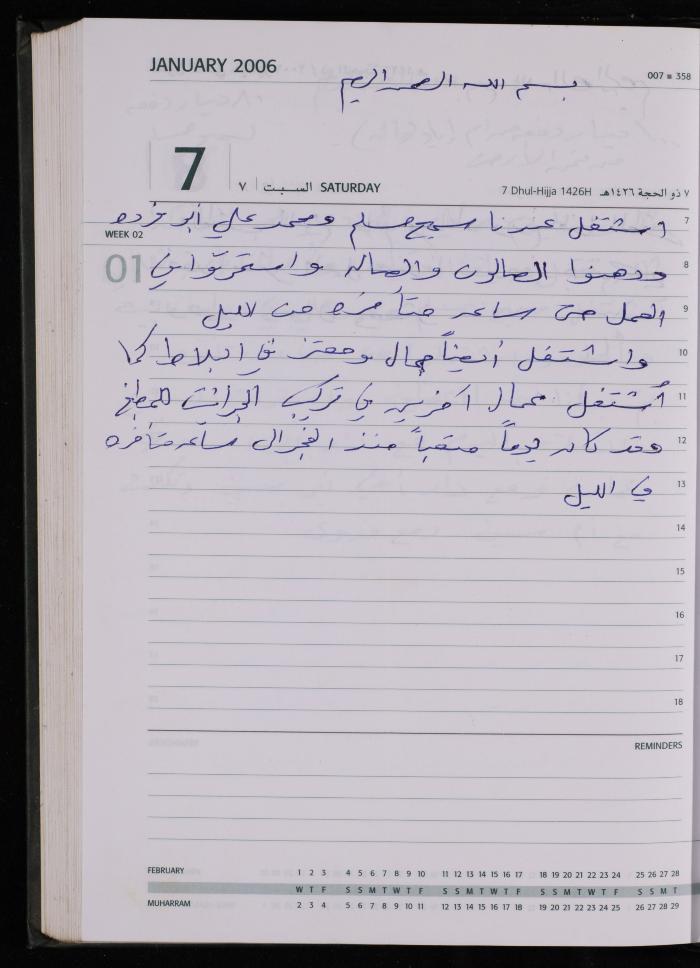 JANUARY 2006
007 ■ 358
بسم الله الرحمن الرحيم
7
٧ السبت SATURDAY
7 Dhul-Hijja 1426H ٧ ذو الحجة ١٤٢٦هـ
7
اشتغل عندنا سميح مسلم ومحمد علي أبو فرده
WEEK 02
01
8
ودهنوا الصالون والصاله واستمروا في
9
العمل حتى ساعه متأخره من الليل
10
واشتغل أيضاً جمال ومعتز في البلاط كما
11
أشتغل عمال آخرين في تركيب الجرانيت للمطبخ
12
وقد كان يوماً متعباً منذ الفجر الى ساعه متأخره
13
في الليل
14
15
16
17
18
REMINDERS
FEBRUARY 1 2 3 4 5 6 7 8 9 10 11 12 13 14 15 16 17 18 19 20 21 22 23 24 25 26 27 28
W T F S S M T W T F S S M T W T F S S M T W T F S S M T
MUHARRAM 2 3 4 5 6 7 8 9 10 11 12 13 14 15 16 17 18 19 20 21 22 23 24 25 26 27 28 29